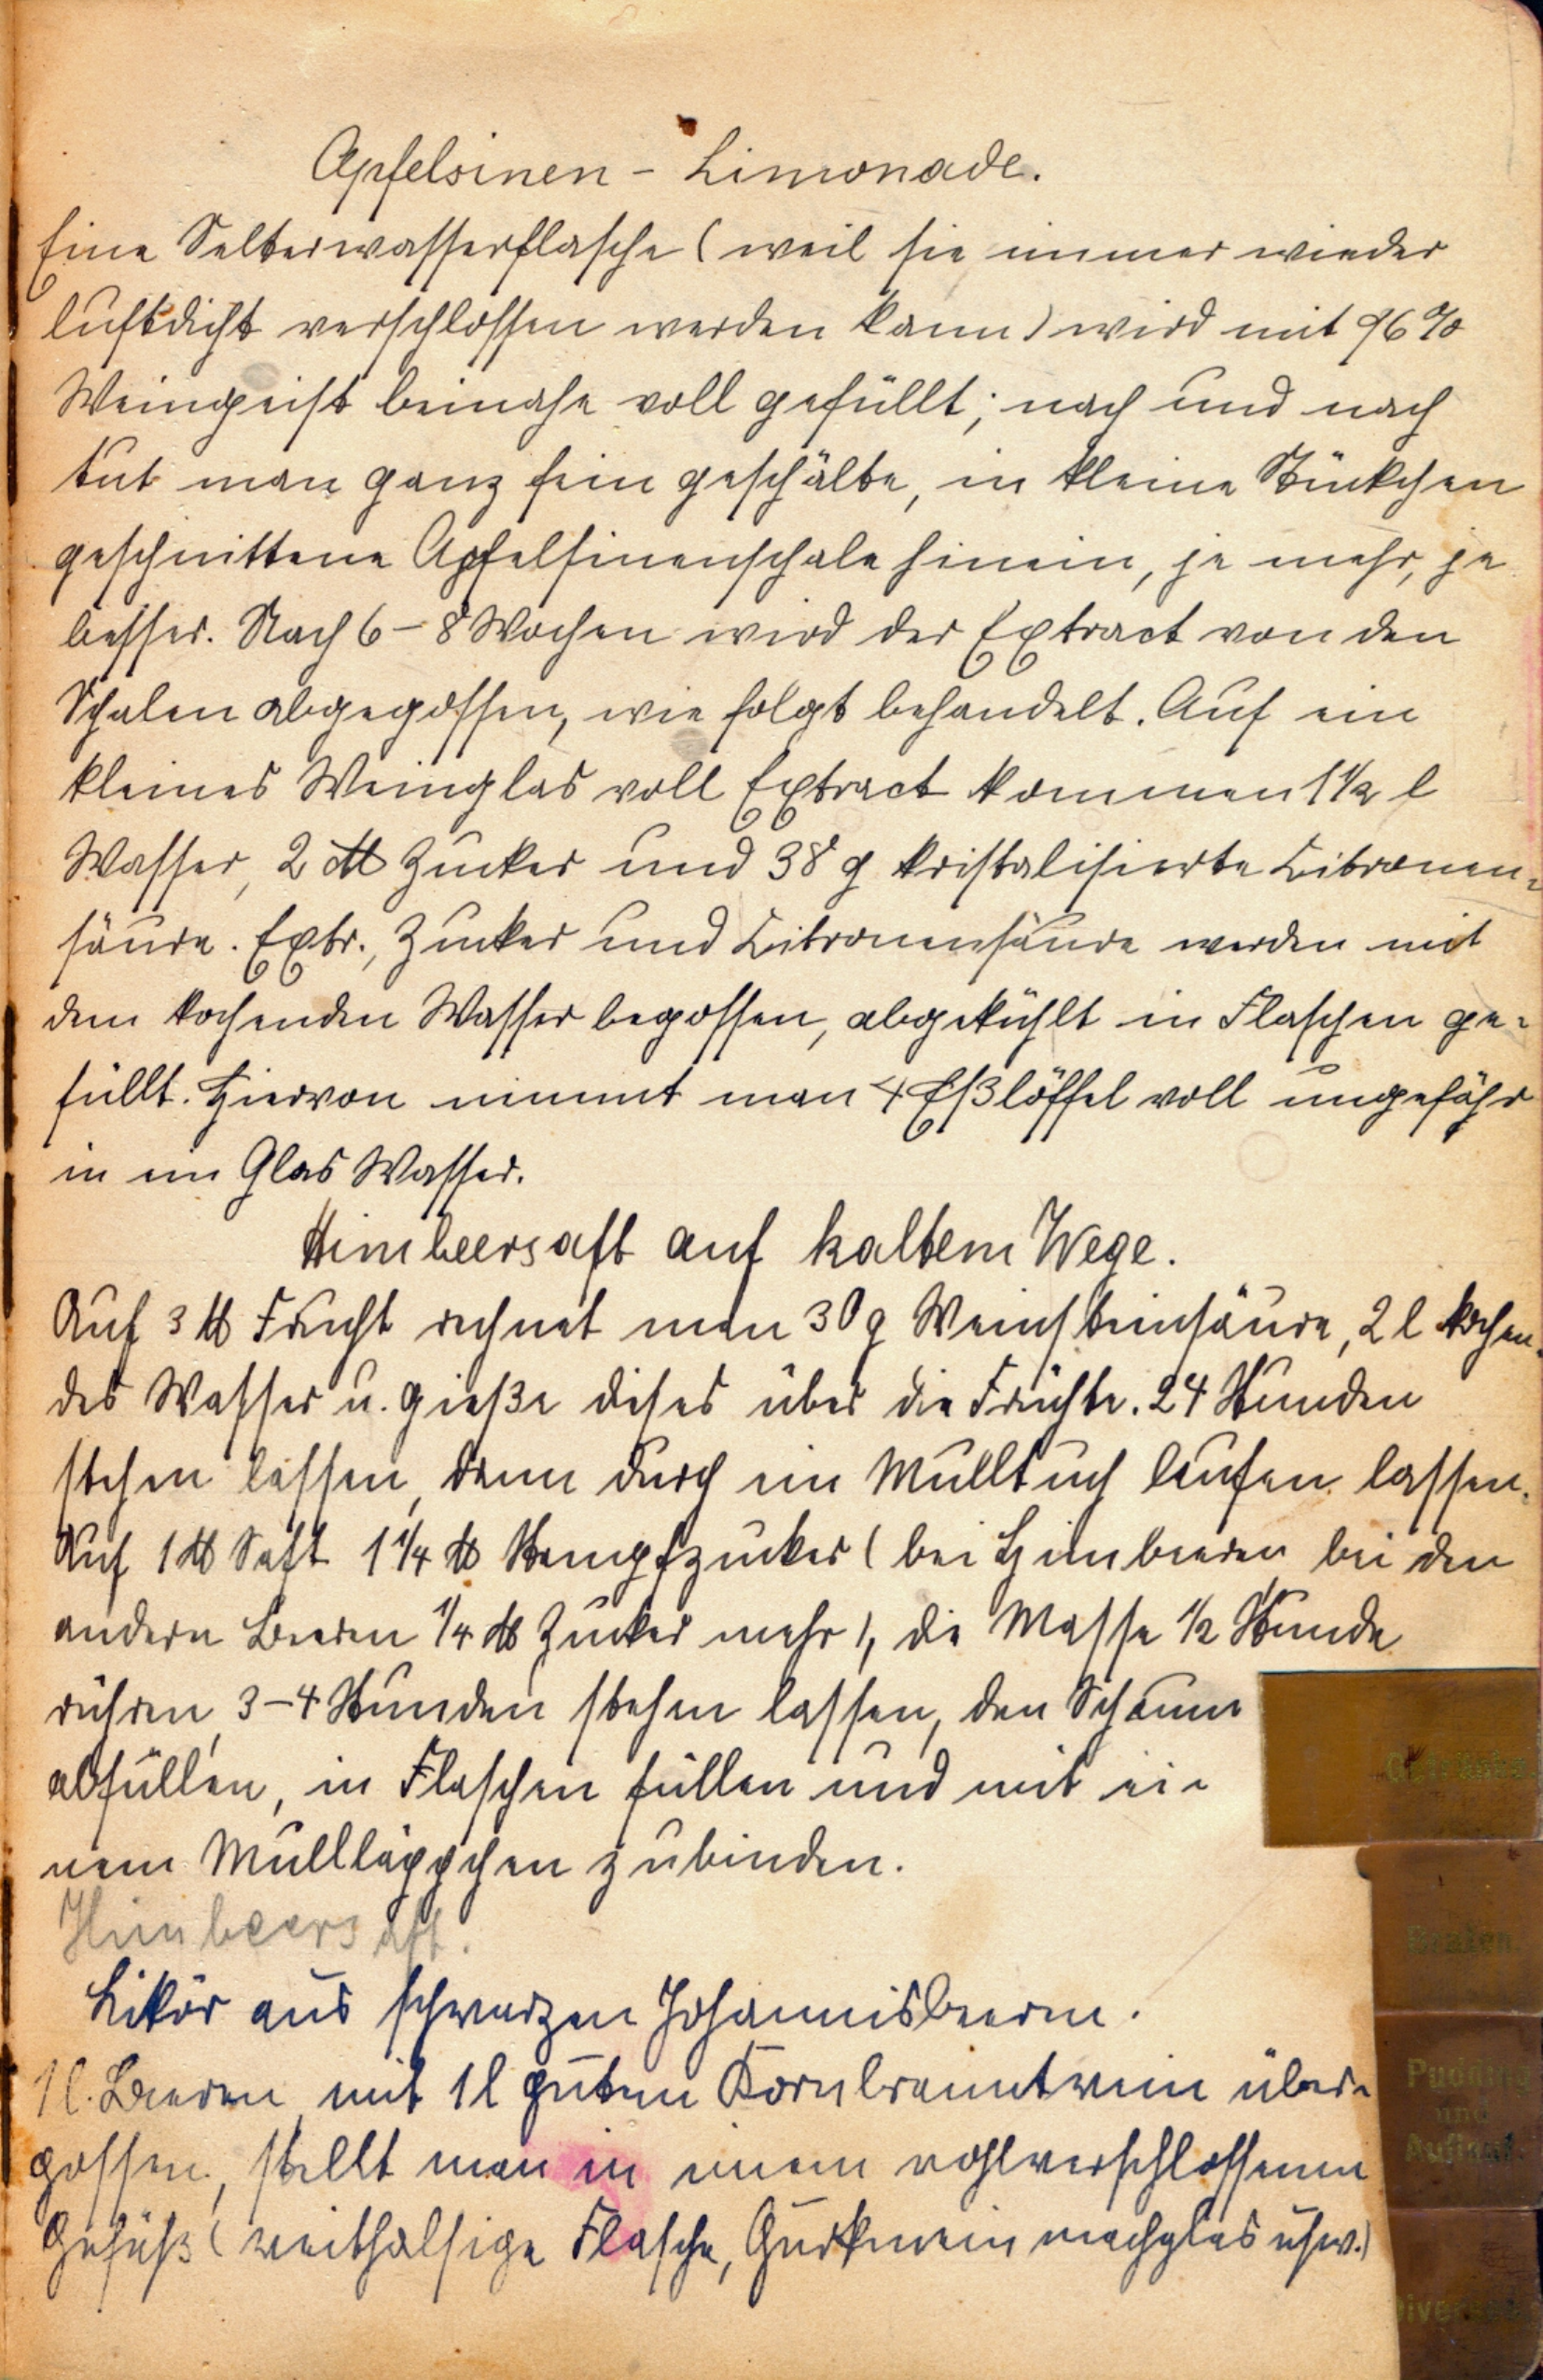 Apfelsinen - Limonade.
Eine Selterwasserflasche (weil sie immer wieder
luftdicht verschlossen werden kann) wird mit 96%
Weingeist beinahe voll gefüllt; nach und nach
tut man ganz fein geschälte, in kleine Stückchen
geschnittene Apfelsinenschale hinein, je mehr, je
besser. Nach 6-8 Wochen wird der Extract von den
Schalen abgegossen, wie folgt behandelt. Auf ein
kleines Weinglas voll Extract kommen 1½ l
Wasser, 2 ℔ Zucker und 38 g kristalisierte Citronen=
säure. Extr., Zucker und Citronensäure werden mit
dem kochenden Wasser begossen, abgekühlt in Flaschen ge=
füllt. Hiervon nimmt man 4 Eßlöffel voll ungefähr
in ein Glas Wasser.
Himbeersaft auf kaltem Wege.
Auf 3 ℔ Frucht rechnet man 30 g Weinsteinsäure, 2 l kochen=
des Wasser u. gieße dises über die Früchte. 24 Stunden
stehen lassen, dann durch ein Mulltuch laufen lassen.
Auf 1 ℔ Saft 1¼ ℔ Stampfzucker (bei Himbeeren bei den
andern Beeren ¼ ℔ Zucker mehr), die Masse ½ Stunde
rühren, 3-4 Stunden stehen lassen, den Schaum
abfüllen, in Flaschen füllen und mit ei=
nem Mullläppchen zubinden.
Himbeersaft.
Likör aus schwarzen Johannisbeeren.
1 l. Beeren mit 1 l gutem Kornbranntwein über=
gossen, stellt man in einem wohlverschlossenen
Gefäß (weithalsige Flasche, Gurkeneinmachglas usw.)
Getränke
Braten.
Pudding
und
Auflauf.
Diverses